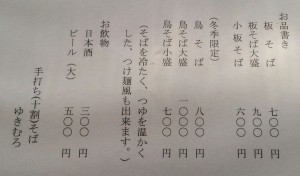 お品書き
板そば 七〇〇円
板そば大盛 九〇〇円
小板そば 六〇〇円
(冬季限定)
鳥そば 八〇〇円
鳥そば大盛 一〇〇〇円
鳥そば小盛 七〇〇円
(そばを冷たく、つゆを温かく
した、つけ麺風も出来ます。)
お飲物
日本酒 三〇〇円
ビール(大) 五〇〇円
手打ち(十割)そば
ゆきむろ